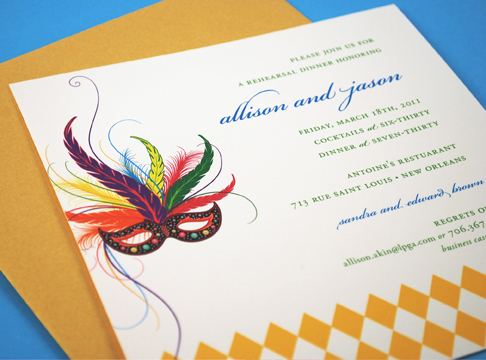 PLEASE JOIN US FOR
A REHEARSAL DINNER HONORING
allison and jason
FRIDAY, MARCH 18TH, 2011
COCKTAILS at SIX-THIRTY
DINNER at SEVEN-THIRTY
ANTOINE'S RESTUARANT
713 RUE SAINT LOUIS • NEW ORLEANS
sandra and edward brown
REGRETS O
allison.akin@lpga.com or 706.367
business ca